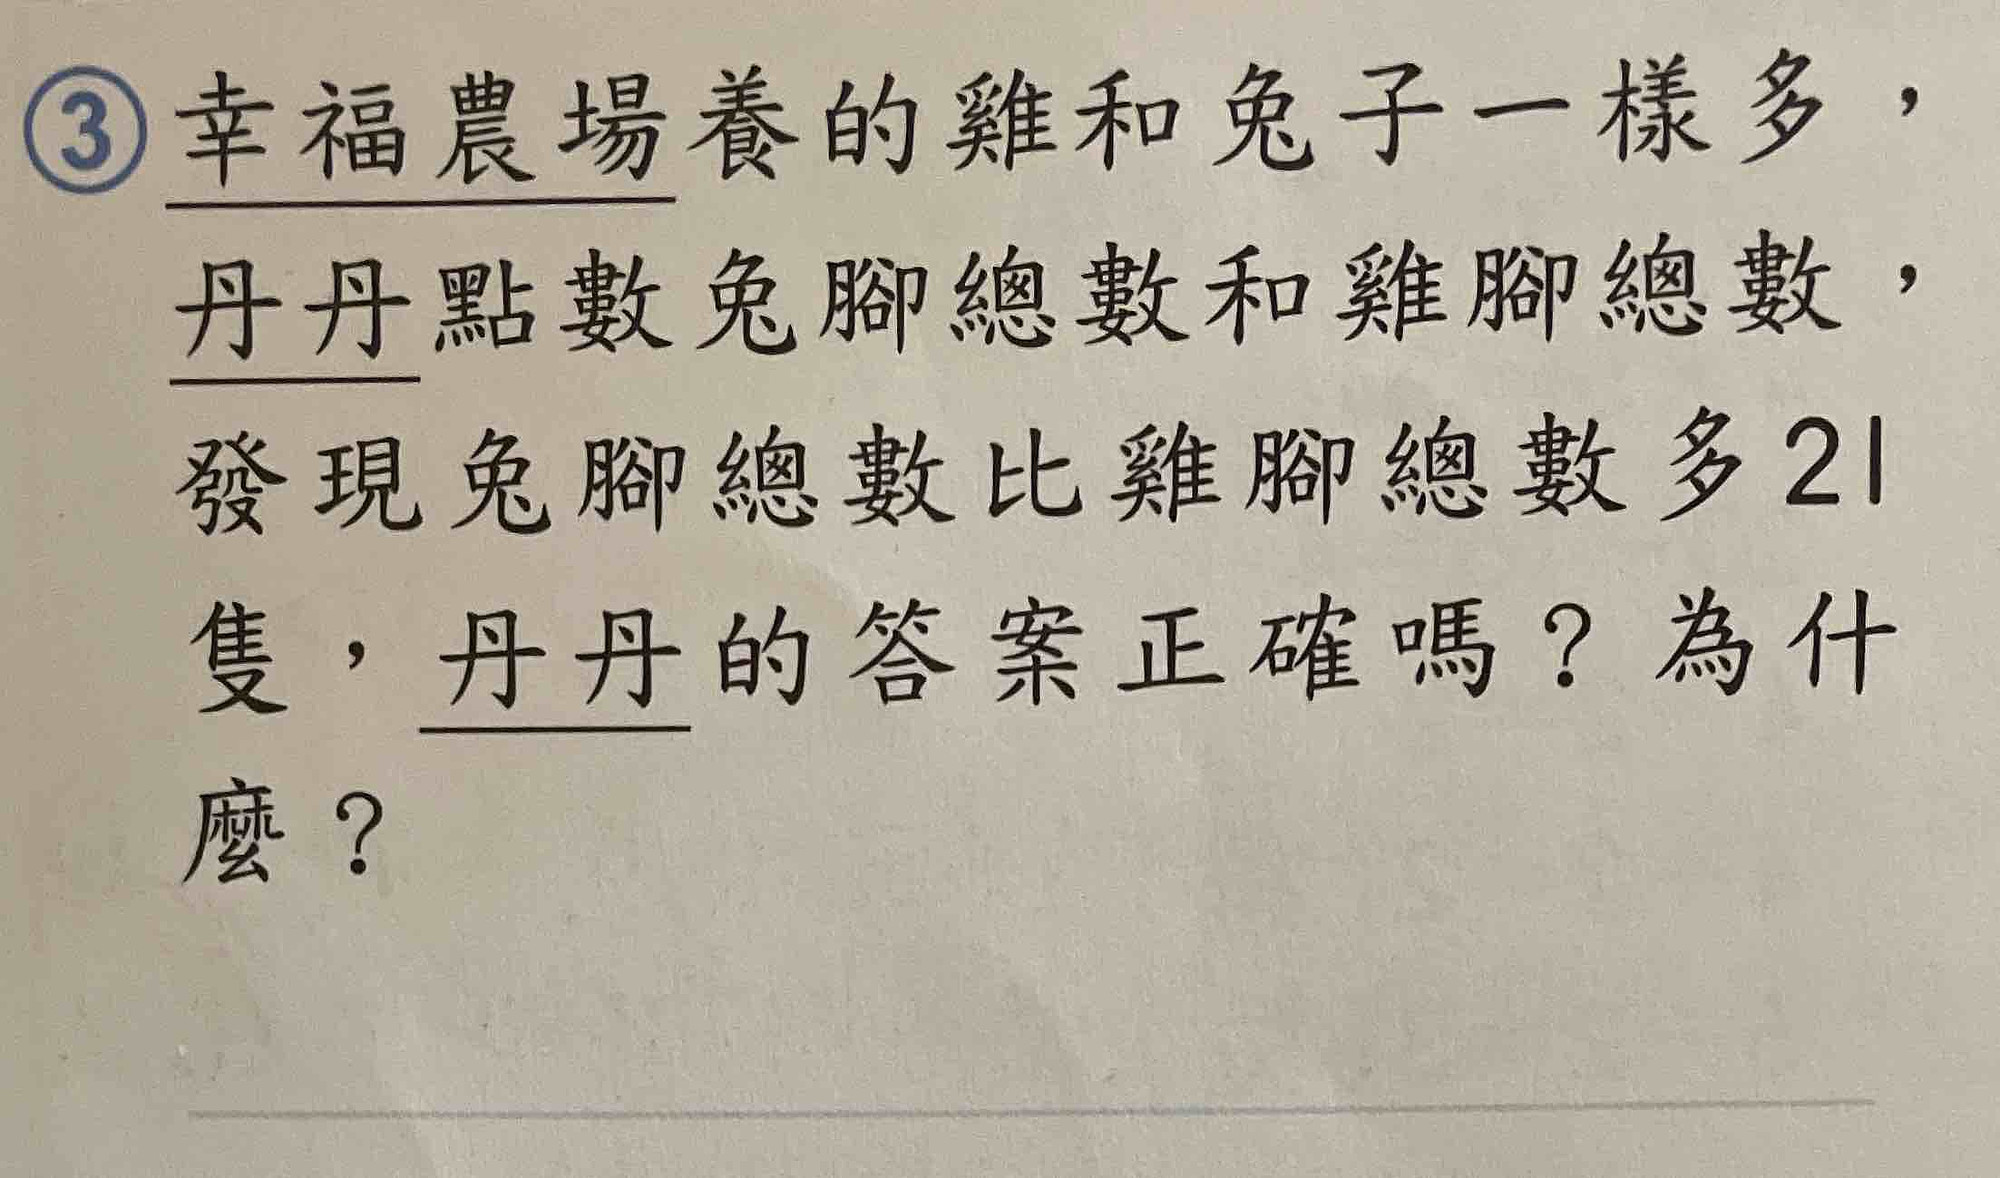 ③幸福農場養的雞和兔子一樣多，
丹丹點數兔腳總數和雞腳總數，
發現兔腳總數比雞腳總數多21
隻，丹丹的答案正確嗎？為什
麼？